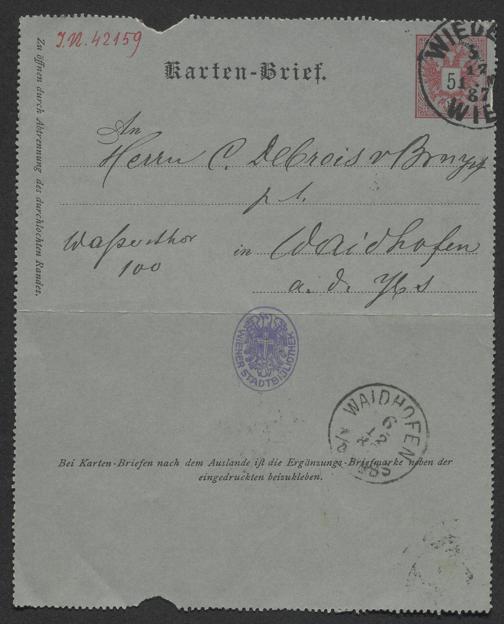 J.N. 42159
Zu öffnen durch Abtrennung des durchlochten Randes.
Karten-Brief.
5
WIEDE
87
WIE
An
Herrn C. DeCrois v Bruyk
p. t.
Wasserthor
100
in Waidhofen
a. d. Ybs
WIENER STADTBIBLIOTHEK
WAIDHOFEN
6
12
Bei Karten-Briefen nach dem Auslande iſt die Ergänzungs-Briefmarke neben der
eingedruckten beizukleben.